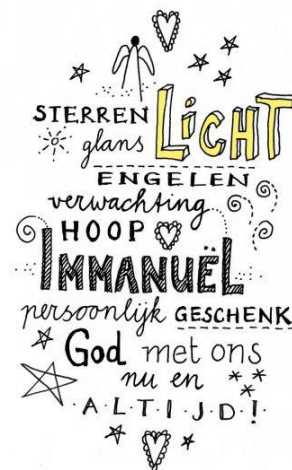 STERREN LICHT
glans
ENGELEN
verwachting
HOOP
IMMANUËL
persoonlijk GESCHENK
God met ons
nu en
A·L·T·I·J·D·!